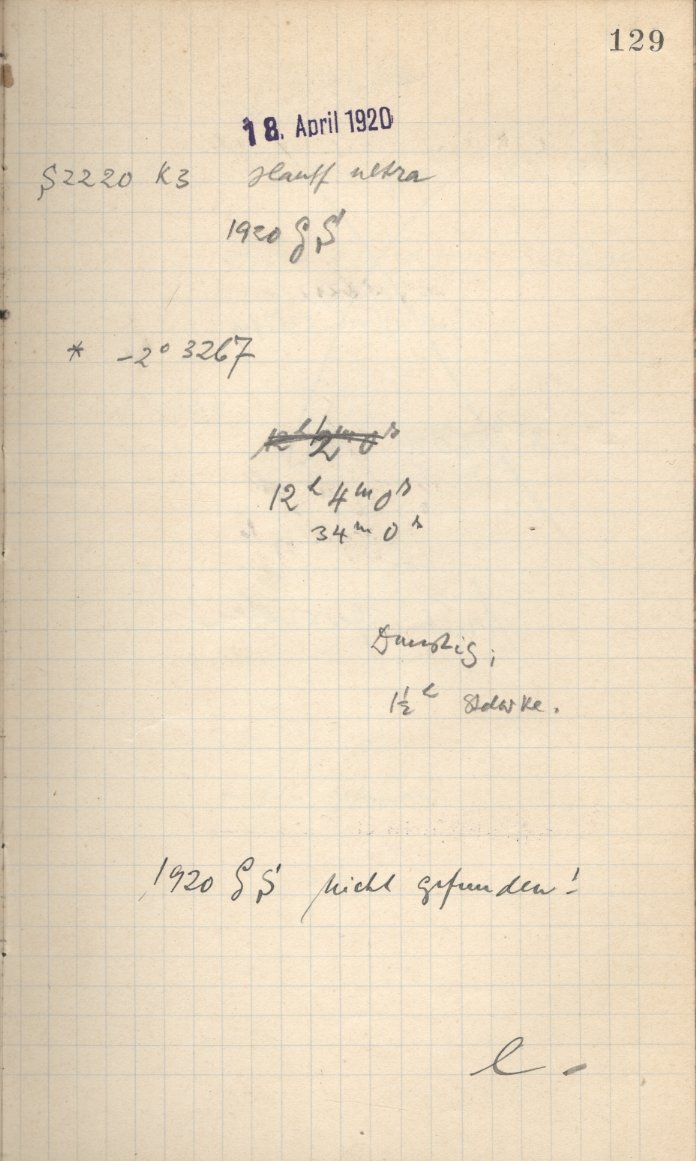 129
18. April 1920
S2220 K3 Hauff ultra
1920
* -2° 3267
12h 2m 0s
12h 4m 0s
34m 0s
Dunstig;
1½h Stärke.
1920 nicht gefunden!